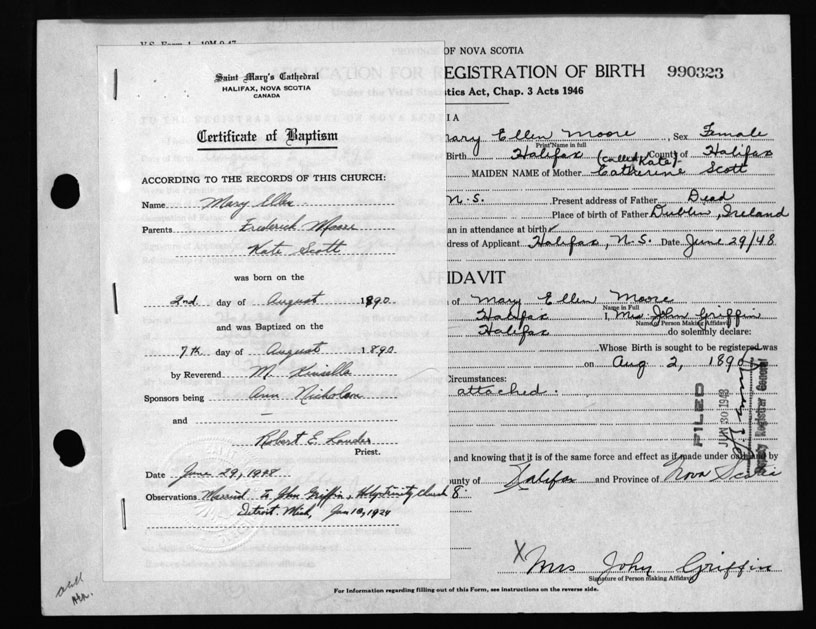 Saint Mary's Cathedral
HALIFAX, NOVA SCOTIA
CANADA
Certificate of Baptism
ACCORDING TO THE RECORDS OF THIS CHURCH:
Name Mary Ellen
Parents Frederick Moore
Kate Scott
was born on the
2nd day of August 1890
and was Baptized on the
7th day of August 1890
by Reverend M. Kinsella
Sponsors being Ann Nicholson
and —
Robert E. Lander
Priest.
Date June 29, 1948
Observations Married to John Griffin, Holy Trinity Church
Detroit, Mich, Jan 10, 1924
OF NOVA SCOTIA
REGISTRATION OF BIRTH 990323
tics Act, Chap. 3 Acts 1946
IA
Mary Ellen Moore, Sex Female
Print Name in full
Birth Halifax County of Halifax
(called Kate)
MAIDEN NAME of Mother Catherine Scott
N.S. Present address of Father Dead
Place of birth of Father Dublin, Ireland
an in attendance at birth
dress of Applicant Halifax, N.S. Date June 29/48
IDAVIT
of Mary Ellen Moore
Name in Full
Halifax I, Mrs John Griffin
Name of Person Making Affidavit
Halifax do solemnly declare:
Whose Birth is sought to be registered was
on Aug 2, 1890
Circumstances:
attached.
FILED
JUN 30 1948
Deputy Registrar General
, and knowing that it is of the same force and effect as if made under oath and by
ounty of Halifax and Province of Nova Scotia
X Mrs John Griffin
Signature of Person making Affidavit
For Information regarding filling out of this Form, see instructions on the reverse side.